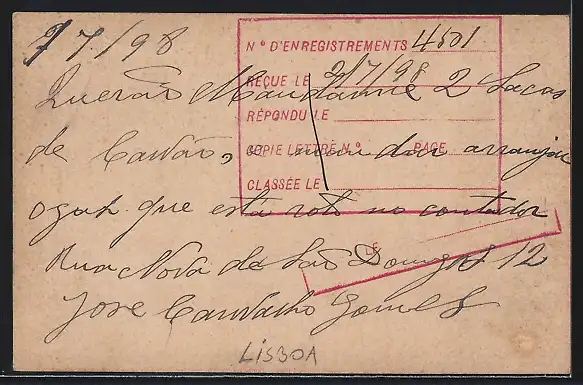 7/7/98
Nº D'ENREGISTREMENTS 4501
REÇUE LE 2/7/98
RÉPONDU LE
COPIE LETTRE Nº PAGE
CLASSÉE LE
Queirão Mandarme 2 Sacas
de Carvão, e mandar arranjar
o gaz que está roto no contador
LE
Rua Nova de São Domgos 12
Jose Carvalho Gomes
LISBOA